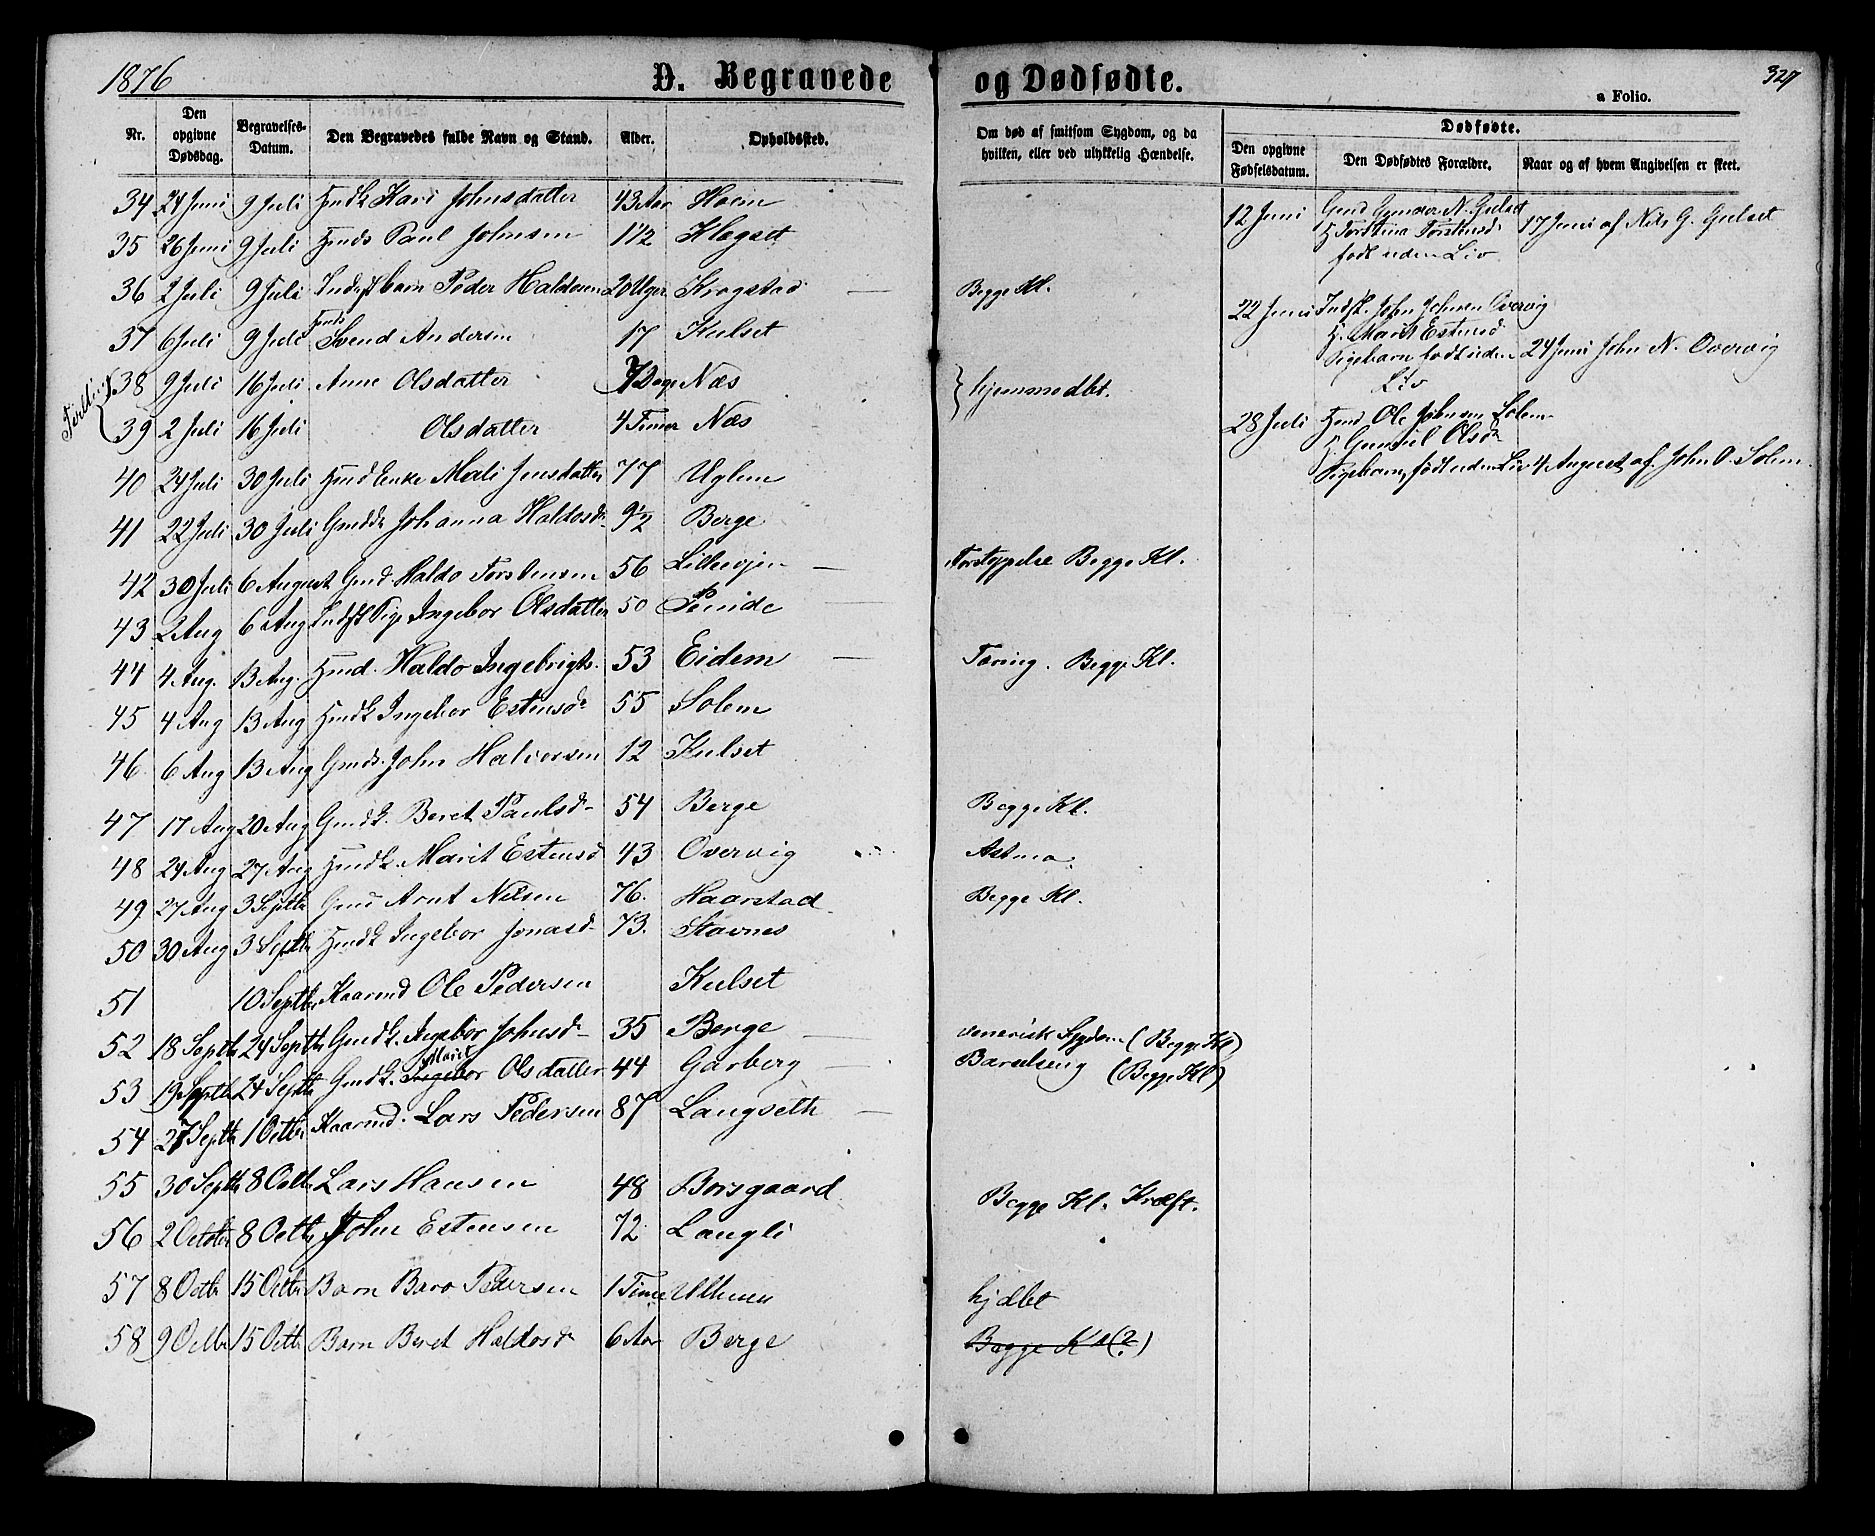 1876
D. Begravede og Dødfødte.
327
a Folio.
Nr. Den opgivne Dødsdag. Begravelses-Datum. Den Begravedes fulde Navn og Stand. Alder. Opholdssted. Om død af smitsom Sygdom, og da hvilken, eller ved ulykkelig Hændelse. Dødfødte. Den opgivne Fødselsdatum. Den Dødfødtes Forældre. Naar og af hvem Angivelsen er skeet.
34 24 Juni 9 Juli Kari Johnsdatter 43 Aar Moen
35 26 Juni 9 Juli Paul Johnsen 1 1/2 Klegset
36 2 Juli 9 Juli Indst barn Peder Haldorsen 20 Uger Krogstad — Begge Kl.
37 6 Juli 9 Juli Svend Andersen 17 Kulset
Tvilling
38 9 Juli 16 Juli Anne Olsdatter 7 Dage Næs } hjemmedbt.
39 2 Juli 16 Juli Olsdatter 4 Timer Næs
40 24 Juli 30 Juli Enke Mali Jensdatter 77 Uglem
41 22 Juli 30 Juli Gmdd. Johanna Haldosd. 9 1/2 Berge
42 30 Juli 6 August Gmd. Haldo Torstensen 56 Lillevjen — Forstoppelse Begge Kl.
43 2 Aug 6 Aug Indst Pige Ingebor Olsdatter 50
44 4 Aug. 13 Aug. Hmd. Haldo Ingebrigts. 53 Eidem — Tæring. Begge Kl.
45 4 Aug 13 Aug Hmdk Ingebor Estensd. 55 Solem
46. 6 Aug 13 Aug Gmds. John Halvorsen 12 Kulset
47 17 Aug 20 Aug Gmdk. Beret Paulsd. 54 Berge Begge Kl.
48 24 Aug 27 Aug Hmdk. Marit Estensd 43 Overvig Astma.
49 27 Aug 3 Septbr Gmd Arnt Nilsen 76. Haarstad Begge Kl.
50 30 Aug 3 Septbr Hmdk Ingebor Jonasd. 73. Stavnes
51 10 Septbr Kaarmd Ole Pedersen Kulset
52 18 Septbr 24 Septbr Gmdk. Ingebor Johnsd. 35 Berge — venerisk Sygdom (Begge Kl)
Marit
53 19 Septbr 24 Septbr Gmdk. Ingebor Olsdatter 44 Garberg — Barselseng (Begge Kl)
54 27 Septbr 1 Octbr Kaarmd. Lars Pedersen 87 Langseth —
55 30 Septbr 8 Octbr Lars Hansen 48 Borsgaard Begge Kl. Kræft.
56 2 Octobr 8 Octbr John Estensen 72 Langli
57 8 Octbr 15 Octbr Barn Baro Pedersen 1 Time hjdbt
58 9 Octbr 15 Octbr Barn Beret Haldosd 6 Aar Berge Begge Kl (?)
12 Juni Gmd Gunder N. Gulset
17 Juni af Nils G. Gulset
født uden Liv
22 Juni Indst. John Johnsen Overvig
H. Marit Estensd.
Pigebarn født uden 24 Juni John N. Overvig
Liv
28 Juli Hmd Ole Johnsen Solem
H. Gunnil Olsd.
Pigebarn, født uden Liv 4 August, af John O. Solem